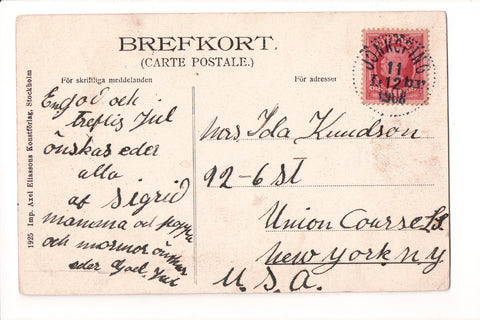 BREFKORT.
(CARTE POSTALE.)
För skriftliga meddelanden
För adresser
En god och
treflig Jul
önskas eder
alla
af Sigrid
mamma och pappa
och mormor önskar
eder God Jul
1925 Imp. Axel Eliassons Konstförlag, Stockholm
JÖNKÖPING
11
12
1908
Mrs Ida Knudson
92-6 St
Union Course L.I.
New York N.Y
U.S.A.